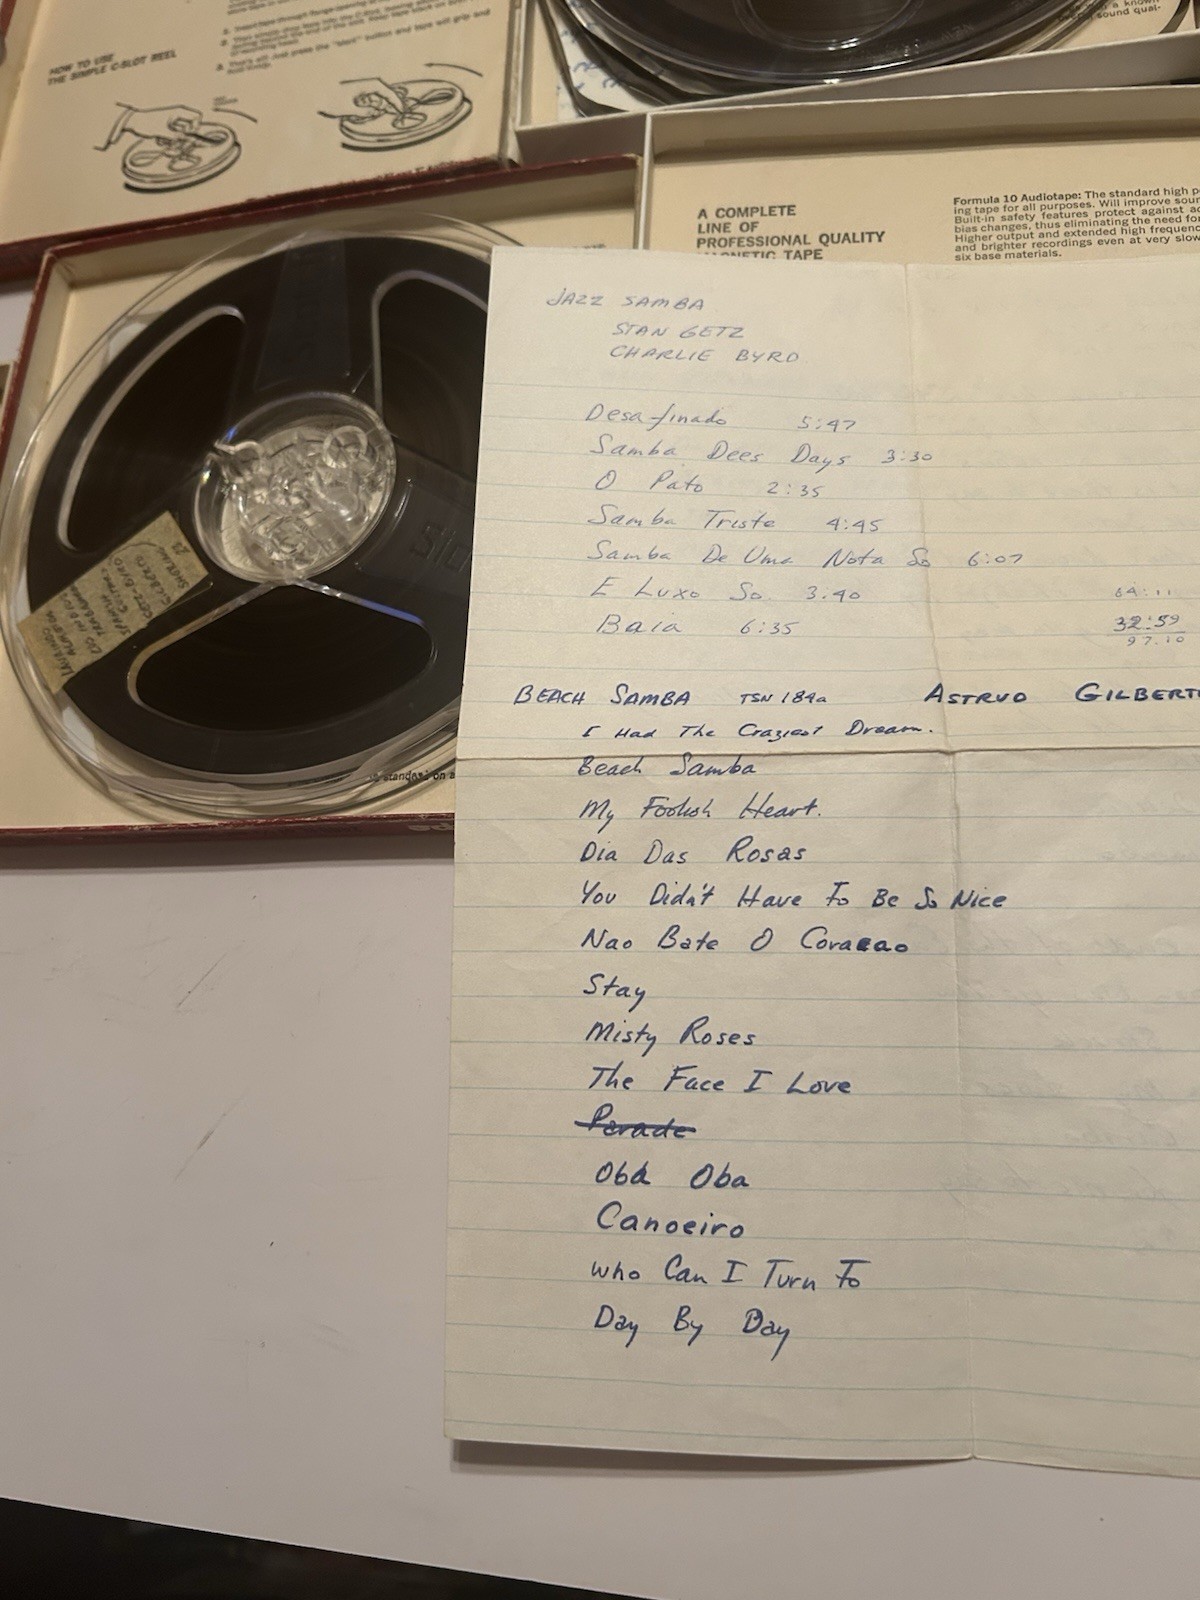 HOW TO USE
THE SIMPLE C-SLOT REEL
A COMPLETE
LINE OF
PROFESSIONAL QUALITY
MAGNETIC TAPE
Formula 10 Audiotape: The standard high
ing tape for all purposes. Will improve
Built-in safety features protect against
bias changes, thus eliminating the need for
Higher output and extended high
and brighter recordings even at very slow
six base materials.
JAZZ SAMBA
STAN GETZ
CHARLIE BYRD
Desafinado 5:47
Samba Dees Days 3:30
O Pato 2:35
Samba Triste 4:45
Samba De Uma Nota So 6:07
E Luxo So. 3:40
64:11
Baia 6:35
32:59
97.10
BEACH SAMBA TSN 184a ASTRUD GILBERTO
I Had The Craziest Dream.
Beach Samba
My Foolish Heart.
Dia Das Rosas
You Didn't Have To Be So Nice
Nao Bate O Coracao
Stay
Misty Roses
The Face I Love
Parade
Oba Oba
Canoeiro
Who Can I Turn To
Day By Day